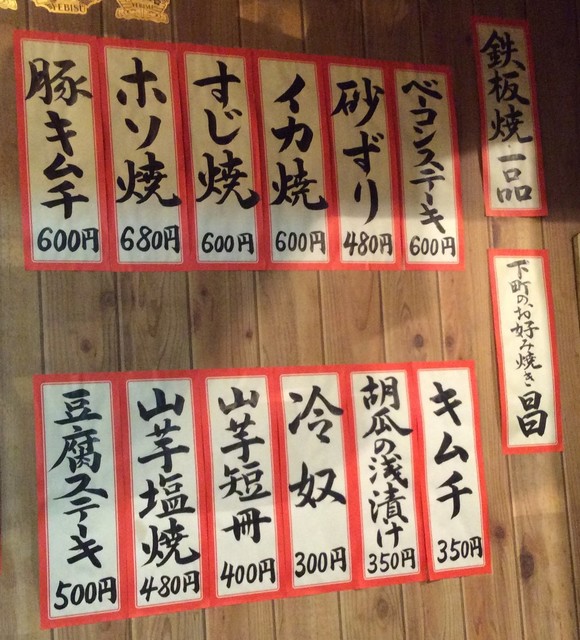 YEBISU
鉄板焼一品
ベーコンステーキ
600円
砂ずり
480円
イカ焼
600円
すじ焼
600円
ホソ焼
680円
豚キムチ
600円
下町のお好み焼き 昌
キムチ
350円
胡瓜の浅漬け
350円
冷奴
300円
山芋短冊
400円
山芋塩焼
480円
豆腐ステーキ
500円